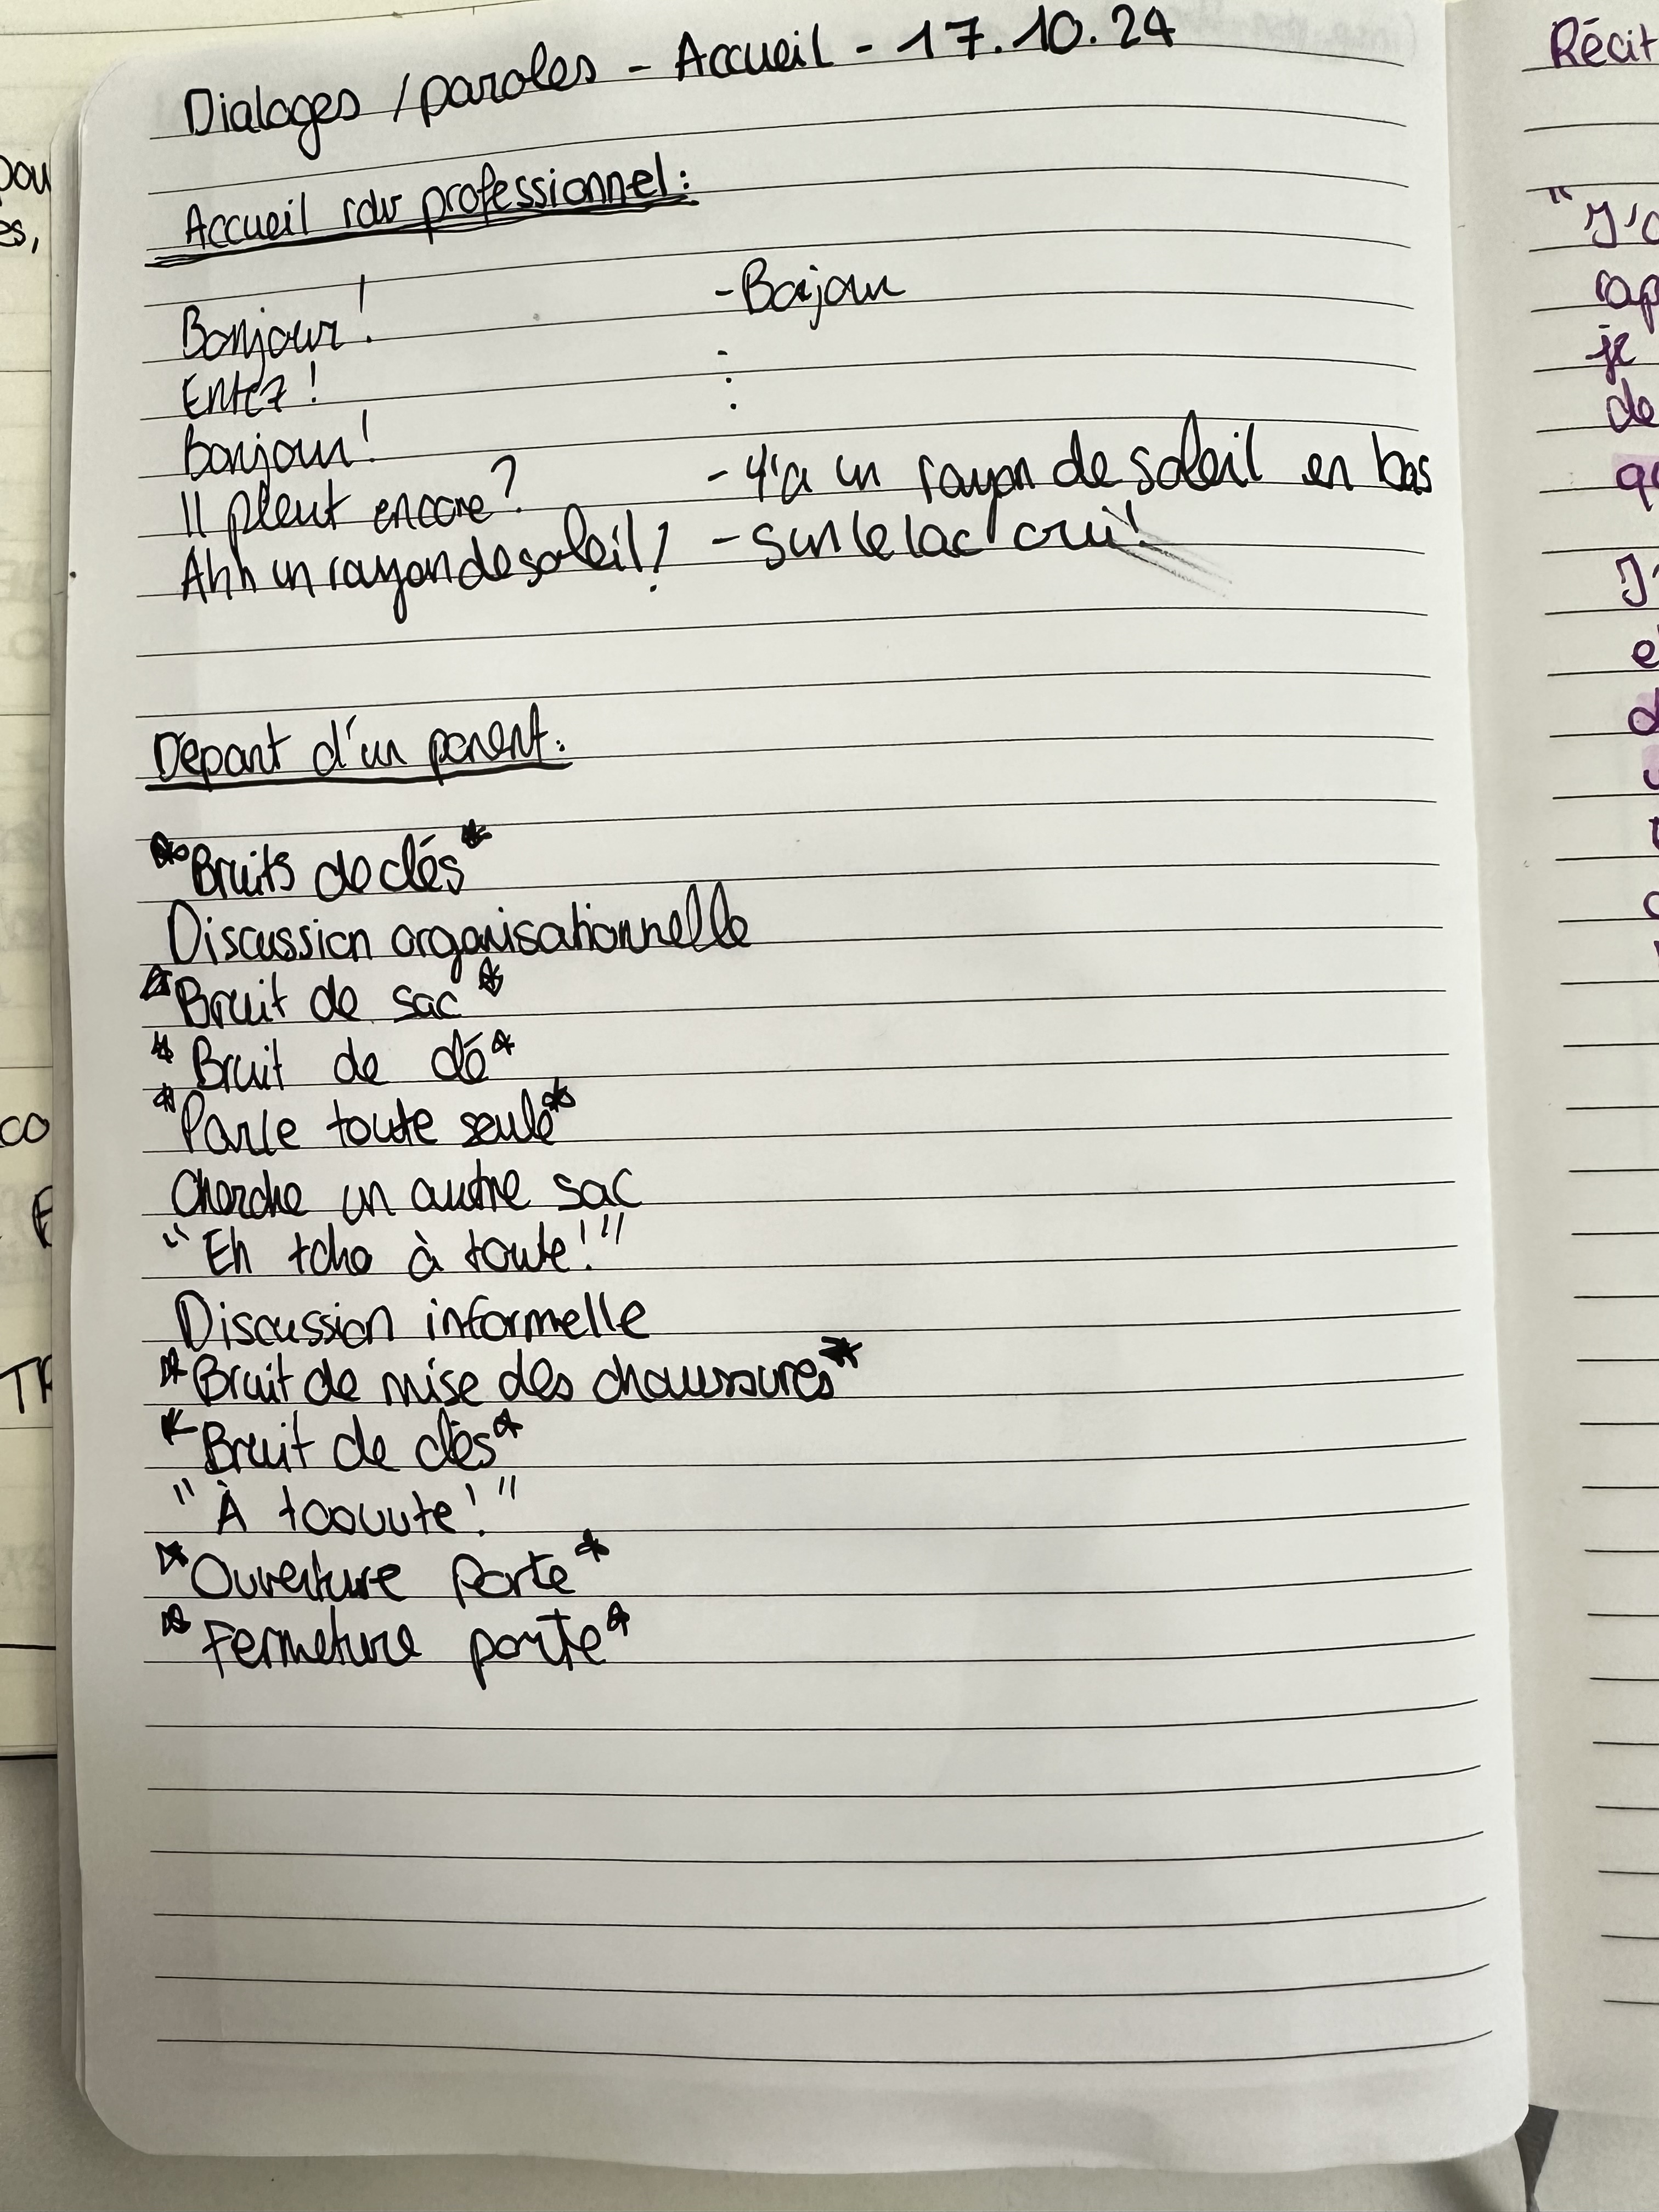 Dialoges / paroles - Accueil - 17.10.24
Accueil rdv professionnel :
Bonjour !
- Bonjour
Entez !
:
Bonjour !
Il pleut encore ?
- Y'a un rayon de soleil en bas
Ahh un rayon de soleil !
- Sur le lac oui !
Départ d'un parent :
*Bruits de clés*
Discussion organisationnelle
*Bruit de sac*
*Bruit de clé*
*Parle toute seule*
Cherche un autre sac
"Eh tcho à toute !"
Discussion informelle
*Bruit de mise des chaussures*
*Bruit de clés*
"À toouute !"
*Ouverture porte*
*Fermeture porte*
pou
es,
co
TR
Récit
"J'a
rap
je
de
qu
J'